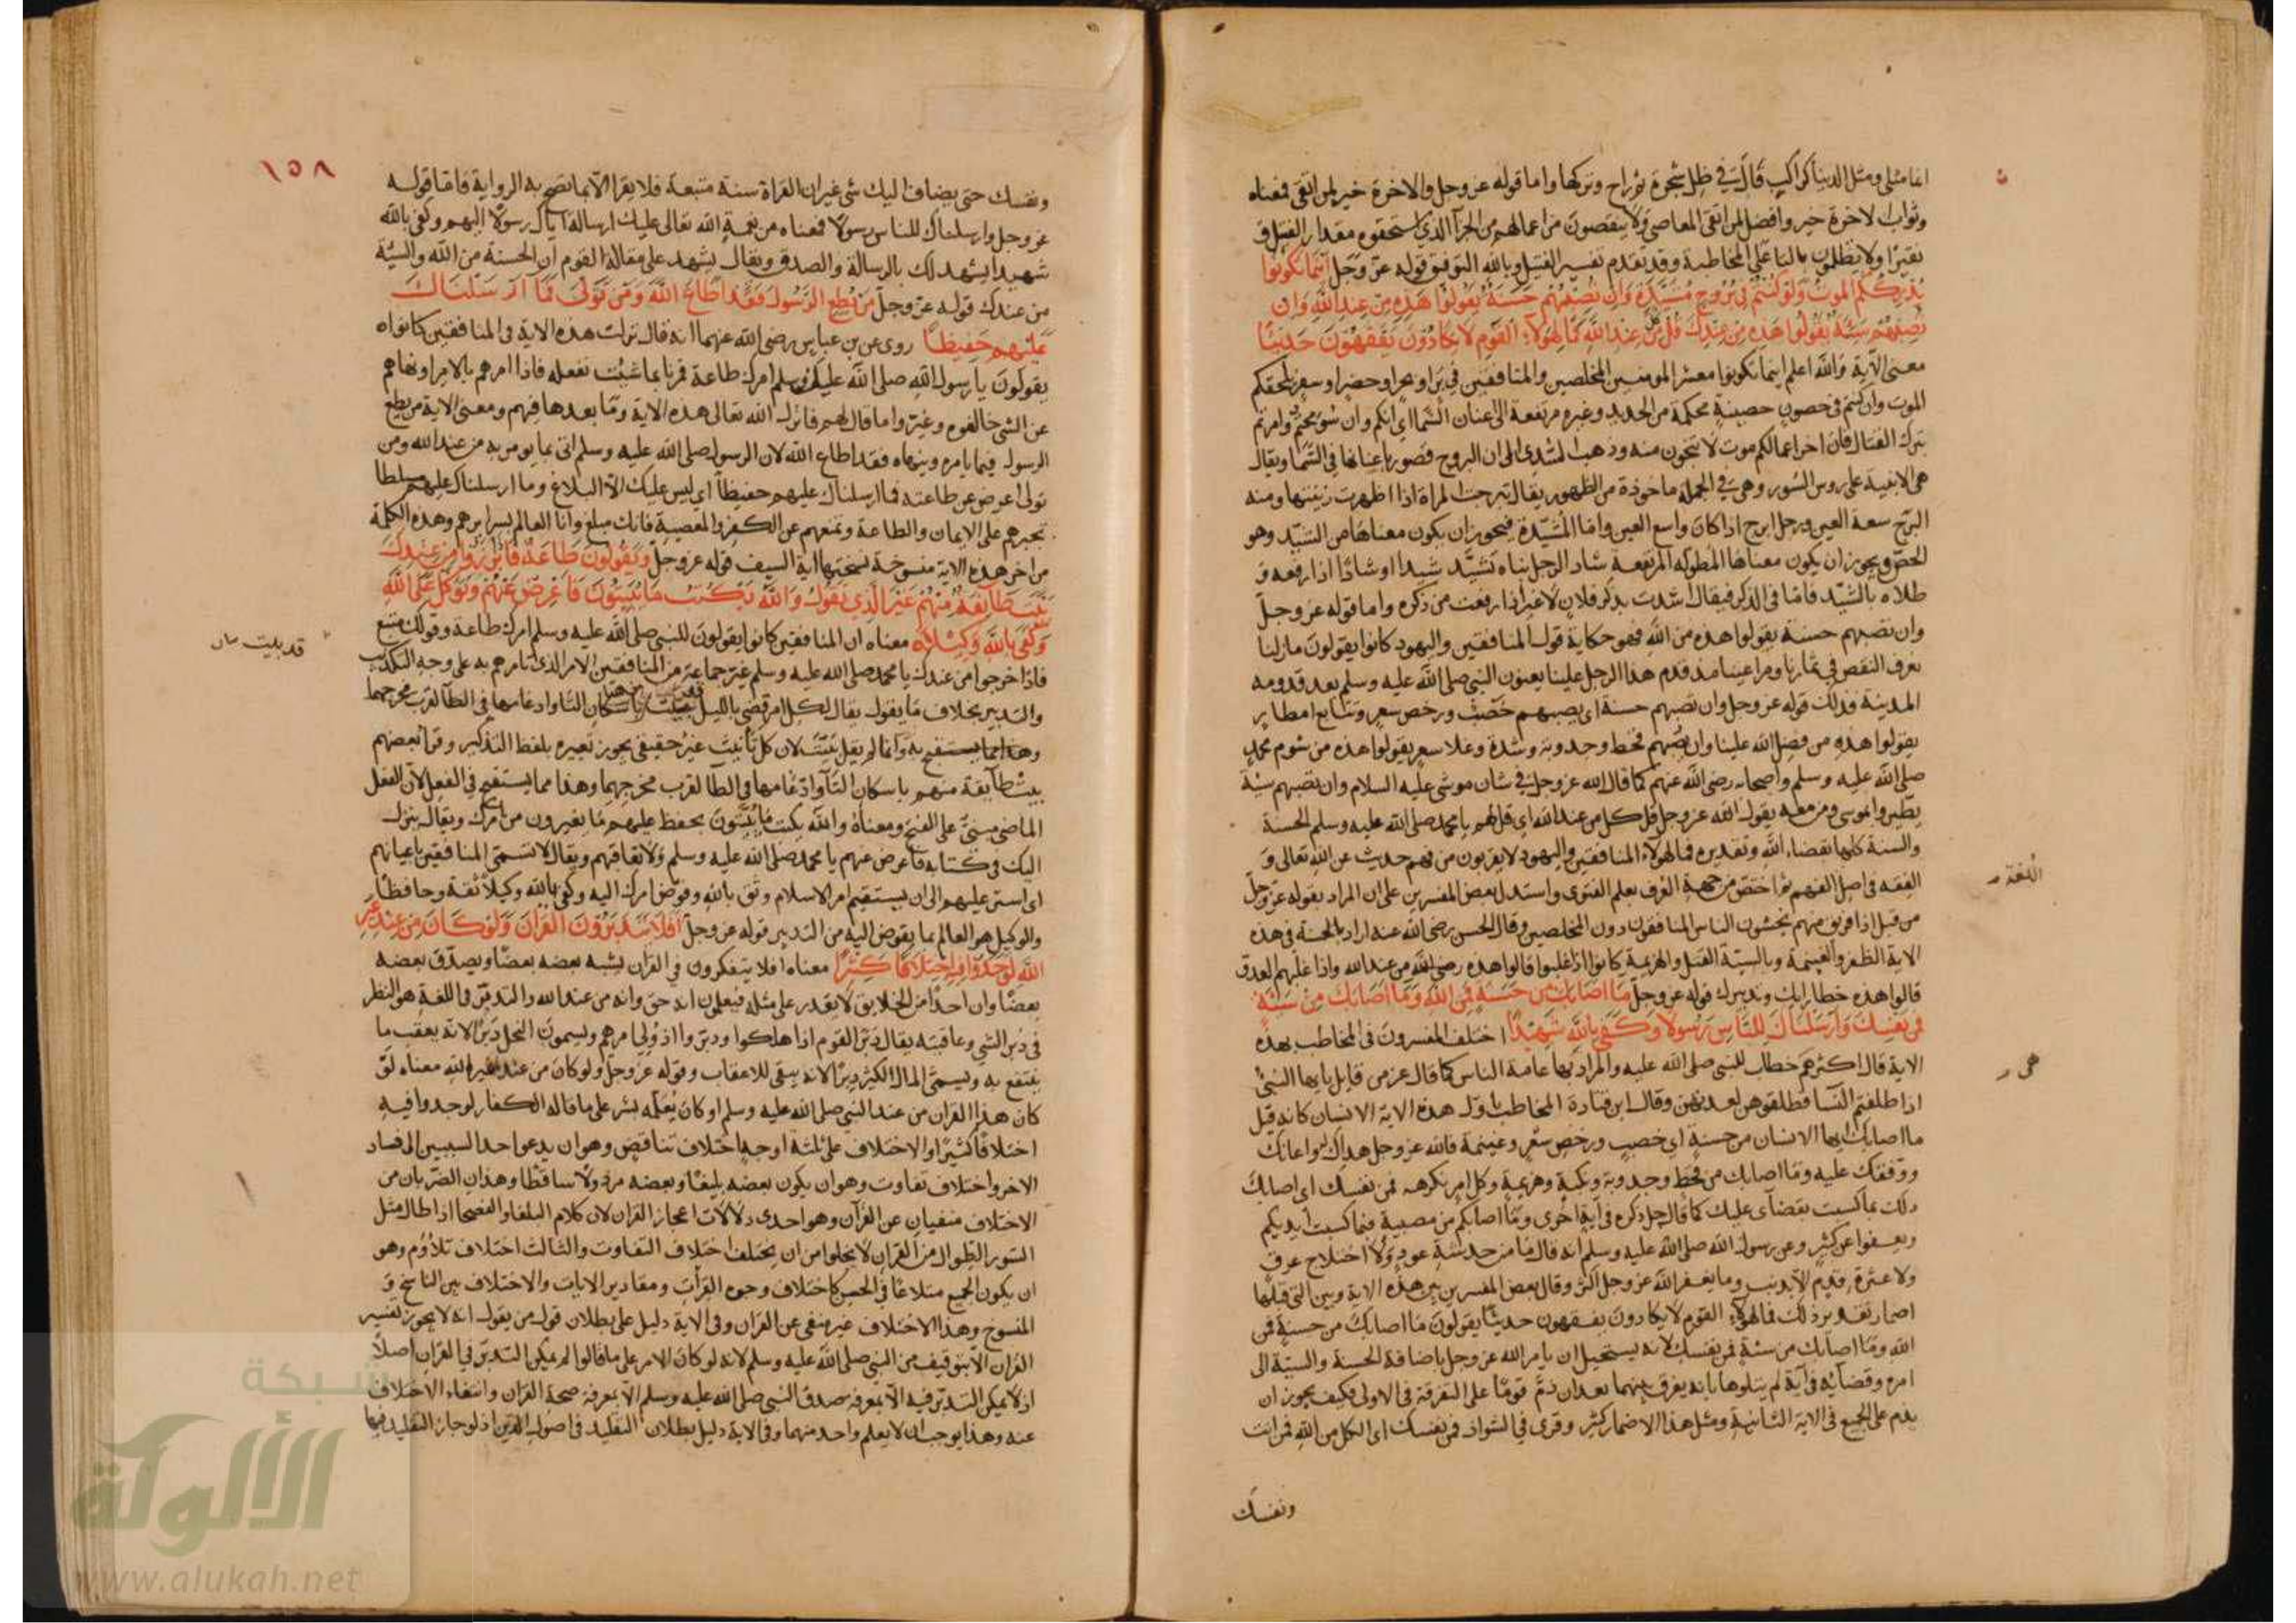 انما مثلى ومثل الدنيا كراكب قال فى ظل شجرة ثم راح وتركها واما قوله عز وجل والاخرة خير لمن اتقى فمعناه
وثواب الاخرة خير وافضل لمن اتقى المعاصى ولا ينقصون من اعمالهم من الجزآ الذى استحقوه مقدار الفتيل و
نقيرًا ولا يظلمون باليا على المخاطبة وقد تقدم تفسير الفتيل وبالله التوفيق قوله عز وجل اينما تكونوا
يدرككم الموت ولو كنتم فى بروج مشيدة وان تصبهم حسنة يقولوا هذه من عند الله وان
تصبهم سيئة يقولوا هذه من عندك قل كل من عند الله فمال هؤلاء القوم لا يكادون يفقهون حديثا
معنى الآية والله اعلم اينما تكونوا معشر المومنين المخلصين والمنافقين فى بر او بحر او حضر او سفر يلحقكم
الموت وان كنتم فى حصون حصينة محكمة من الحديد وغيره مرتفعة الى عنان السما اى انكم وان
بترك القتال فان اخر اعمالكم موت لا تنجون منه وذهب السدى الى ان البروج قصور باعيانها فى السما ويقال
هى الابنية على روس السور وهى فى الجملة ماخوذة من الظهور يقال تبرجت المراة اذا اظهرت زينتها ومنه
البرج سعة العين ورجل ابرج اذا كان واسع العين واما المشيدة فيجوز ان يكون معناها من الشيد وهو
الجص ويجوز ان يكون معناها المطولة المرتفعة شاد الرجل بناه يشيد شيدا اوشادًا اذا رفعه و
طلاه بالشيد فاما فى الذكر فيقال اشدت بذكر فلان لا غير اذا رفعت من ذكره واما قوله عز وجل
وان تصبهم حسنة يقولوا هذه من الله فهو حكاية قول المنافقين واليهود كانوا يقولون مازلنا
نعرف النقص فى ثمارنا ومراعينا منذ قدم هذا الرجل علينا يعنون النبى صلى الله عليه وسلم بعد قدومه
المدينة فذلك قوله عز وجل وان تصبهم حسنة اى يصبهم خصب ورخص سعر وتتابع امطار
يقولوا هذه من فضل الله علينا وان تصبهم قحط وجدوبة وشدة وغلا سعر يقولوا هذه من شوم محمد
صلى الله عليه وسلم واصحابه رضى الله عنهم كما قال الله عز وجل فى شان موسى عليه السلام وان تصبهم سيئة
يطيروا بموسى ومن معه يقول الله عز وجل قل كل من عند الله اى قل لهم يا محمد صلى الله عليه وسلم الحسنة
والسيئة كلها بقضاء الله وتقديره فمال هولاء المنافقين واليهود لا يقربون من فهم حديث عن الله تعالى و
الفقه فى اصل الفهم ثم اختص من جهة العرف بعلم الفتوى واستدل بعض المفسرين على ان المراد بقوله عز وجل
الفقه
من قبل اذا فريق منهم يخشون الناس المنافقون دون المخلصين وقال الحسن رضى الله عنه اراد بالحسنة فى هذه
الاية الظفر والغنيمة وبالسيئة القتل والهزيمة كانوا اذا غلبوا قالوا هذه من عند الله واذا غلبهم العدو
قالوا هذه خطا رايك وتدبيرك قوله عز وجل ما اصابك من حسنة فمن الله وما اصابك من سيئة
فمن نفسك وارسلناك للناس رسولا وكفى بالله شهيدًا اختلف المفسرون فى المخاطب بهذه
الاية قال اكثرهم خطاب للنبى صلى الله عليه والمراد بها عامة الناس كما قال عز من قايل يا ايها النبى
هى
اذا طلقتم النسآ فطلقوهن لعدتهن وقال ابن قتادة المخاطب باول هذه الاية الانسان كانه قيل
ما اصابك ايها الانسان من حسنة اى خصب ورخص سعر وغنيمة فالله عز وجل هداك له واعانك
ووفقك عليه وما اصابك من قحط وجدوبة ونكبة وهزيمة وكل امر تكرهه فمن نفسك اى اصابك
ذلك بما كسبت بقضآى عليك كما قال جل ذكره فى آية اخرى وما اصابكم من مصيبة فبما كسبت ايديكم
ويعفوا عن كثير وعن رسول الله صلى الله عليه وسلم انه قال ما من خدشة عود ولا اختلاج عرق
ولا عثرة قدم الا بذنب وما يغفر الله عز وجل اكثر وقال بعض المفسرين بين هذه الاية وبين التى قبلها
اضمار تقديره ذلك فمال هولاء القوم لا يكادون يفقهون حديثًا يقولون ما اصابك من حسنة فمن
الله وما اصابك من سيئة فمن نفسك لانه يستحيل ان يامر الله عز وجل باضافة الحسنة والسيئة الى
امره وقضائه فى آية ثم يتلوها باية يفرق بينهما بعد ان ذم قومًا على التفرقة فى الاولى فكيف يجوز ان
يذم على الجمع فى الاية الثانية ومثل هذا الاضمار كثير وقرى فى الشواذ فمن نفسك اى الكل من الله فمن انت
ونفسك
١٥٨
ونفسك حتى يضاف اليك شى غير ان القراة سنة متبعة فلا يقرا الا بما يصح به الرواية فاما قوله
عز وجل وارسلناك للناس رسولًا فمعناه من نعمة الله تعالى عليك ارساله اياك رسولًا اليهم وكفى بالله
شهيدا يشهد لك بالرسالة والصدق ويقال يشهد على مقالة القوم ان الحسنة من الله والسيئة
من عندك قوله عز وجل من يطع الرسول فقد اطاع الله ومن تولى فما ارسلناك
عليهم حفيظًا روى عن بن عباس رضى الله عنهما انه قال نزلت هذه الاية فى المنافقين كانوا
يقولون يا رسول الله صلى الله عليك وسلم امرك طاعة فمرنا بما شئت نفعله فاذا امرهم بالامر او نهاهم
عن الشى خالفوه وغيروا ما قال لهم فانزل الله تعالى هذه الاية وما بعدها فيهم ومعنى الاية من يطع
الرسول فيما يامره وينهاه فقد اطاع الله لان الرسول صلى الله عليه وسلم اتى بما يومر به من عند الله ومن
تولى اعرض عن طاعته فما ارسلناك عليهم حفيظًا اى ليس عليك الا البلاغ وما ارسلناك عليهم مسلطا
تجبرهم على الايمان والطاعة وتمنعهم عن الكفر والمعصية فانك مبلغ وانا العالم بسرايرهم وهذه الكلمة
من اخر هذه الاية منسوخة نسختها اية السيف قوله عز وجل ويقولون طاعة فاذا برزوا من عندك
بيت طآئفة منهم غير الذى تقول والله يكتب ما يبيتون فاعرض عنهم وتوكل على الله
وكفى بالله وكيلًا معناه ان المنافقين كانوا يقولون للنبى صلى الله عليه وسلم امرك طاعة وقولك متبع
قد بليت
فاذا خرجوا من عندك يا محمد صلى الله عليه وسلم غير جماعة من المنافقين الامر الذى تامرهم به على وجه التكذيب
والتدبير بخلاف ما يقول يقال لكل امر قضى بالليل باسكان التا وادغامها فى الطا لقرب مخرجهما
وانما لم يقل بيتت لان كل تانيث غير حقيقى يجوز تعبيره بلفظ التذكير وقرا بعضهم
بيت طآئفة منهم باسكان التآ وادغامها فى الطا لقرب مخرجهما وهذا مما يستقيم فى الفعل لان الفعل
الماضى مبنى على الفتح ومعناه والله يكتب ما يبيتون يحفظ عليهم ما يغيرون من امرك ويقال ينزل
اليك فى كتابه فاعرض عنهم يا محمد صلى الله عليه وسلم ولا تعاقبهم ويقال لا تسمى المنافقين باعيانهم
اى استر عليهم الى ان يستقيم امر الاسلام وثق بالله وفوض امرك اليه وكفى بالله وكيلًا ثقة وحافظًا
والوكيل هو العالم بما يفوض اليه من التدبير قوله عز وجل افلا يتدبرون القرآن ولو كان من عند غير
الله لوجدوا فيه اختلافا كثيرًا معناه افلا يتفكرون فى القران يشبه بعضه بعضًا ويصدق بعضه
بعضًا وان احدًا من الخلايق لا يقدر على مثله فيعلمون انه حق وانه من عند الله والتدبر فى اللغة هو النظر
فى دبر الشى وعاقبته يقال دبر القوم اذا هلكوا ودبروا اذ ولى امرهم ويسمون النحل دبرًا لانه يعقب ما
ينتفع به ويسمى المال الكثير دبرًا لانه يبقى للاعقاب وقوله عز وجل ولو كان من عند غير الله معناه لو
كان هذا القران من عند النبى صلى الله عليه وسلم او كان يعلمه بشر على ما قاله الكفار لوجدوا فيه
اختلافًا كثيرًا والاختلاف على ثلثة اوجه اختلاف تناقض وهو ان يدعو احد السببين الى فساد
الاخر واختلاف تفاوت وهو ان يكون بعضه بليغًا وبعضه مرذولًا ساقطًا وهذان الضربان من
الاختلاف منفيان عن القرآن وهو احدى دلالات اعجاز القران لان كلام البلغا والفصحا اذا طال مثل
السور الطوال من القران لا يخلوا من ان يختلف اختلاف التفاوت والثالث اختلاف تلاؤم وهو
ان يكون الجميع متلائمًا فى الحسن كاختلاف وجوه القرآت ومقادير الايات والاختلاف بين الناسخ و
المنسوخ وهذا الاختلاف غير منفى عن القران وفى الاية دليل على بطلان قول من يقول انه لا يجوز تفسير
القران الا بتوقيف من النبى صلى الله عليه وسلم لانه لو كان الامر على ما قالوا لم يمكن التدبر فى القران اصلًا
اذ لا يمكن التدبر فيه الا بمعرفة صدق النبى صلى الله عليه وسلم الا بمعرفة صحة القران وانتفاء الاختلاف
عنه وهذا يوجب ان لا يعلم واحد منهما وفى الاية دليل بطلان التقليد فى اصول الدين اذ لو جاز التقليد فيها
شبكة
الألوكة
www.alukah.net